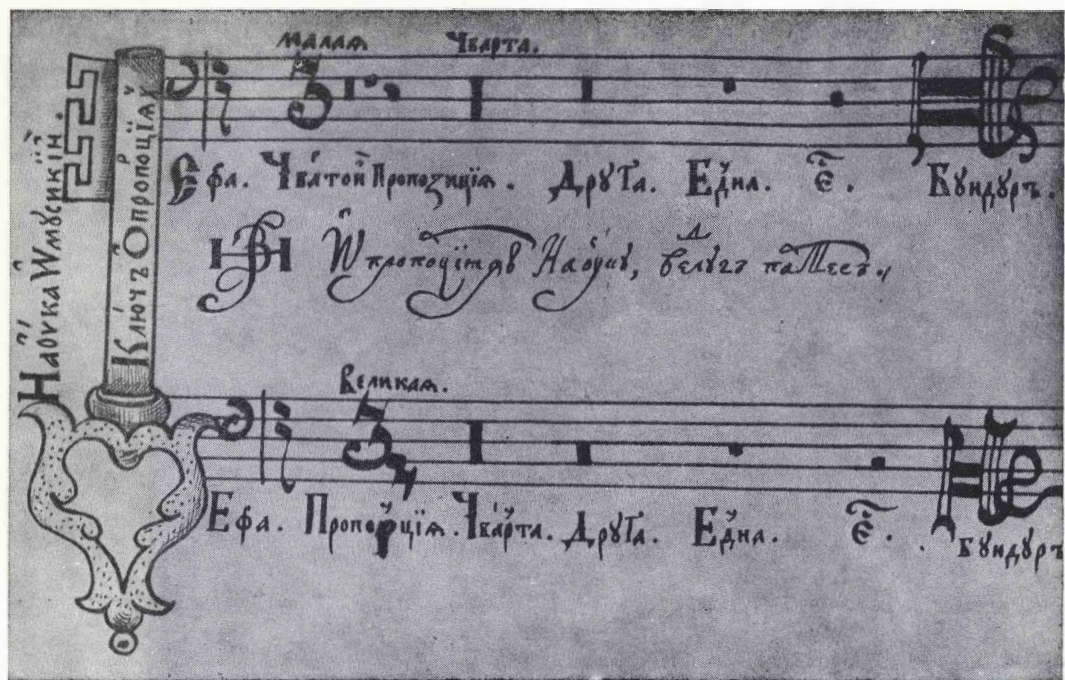 Наоука Ѡ мусикїи.
Ключъ Ѡ пропоцїѧ
малаѧ Чварта.
Єфа. Чвлтои Пропозициїѧ. Друга. Една. є҃. Бундуръ.
Ѡ пропоцїѧ Наоуку,
Великаѧ.
Ефа. Пропоцїѧ. Чварта. Друга. Една. є҃. Бундуръ